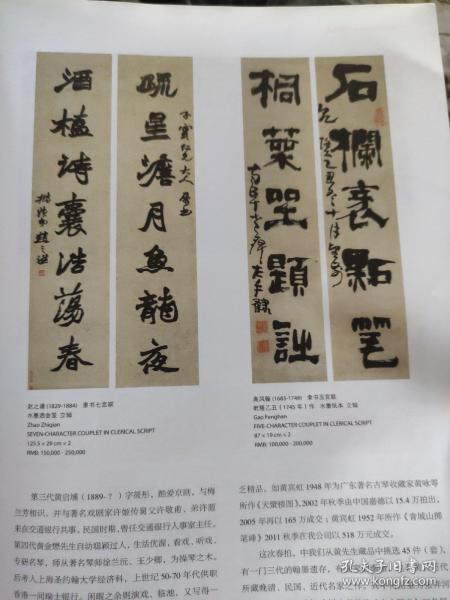 疏星澹月魚龍夜
酒榼詩囊浩蕩春
趙之謙
石欄衺點筆
桐葉坐題詩
赵之谦 (1829-1884) 隶书七言联
水墨洒金笺 立轴
Zhao Zhiqian
SEVEN-CHARACTER COUPLET IN CLERICAL SCRIPT
125.5 × 29 cm × 2
RMB: 150,000 - 250,000
高凤翰 (1683-1748) 隶书五言联
乾隆乙丑 (1745 年) 作 水墨纸本 立轴
Gao Fenghan
FIVE-CHARACTER COUPLET IN CLERICAL SCRIPT
87 × 19 cm × 2
RMB: 100,000 - 200,000
第三代黄启埔（1889-？）字筱彤，酷爱京剧，与梅
兰芳相识，并与著名戏剧家许姬传舅父许敬甫、弟许源
来在交通银行共事。民国时期，曾任交通银行人事室主任。
第四代黄金懋先生自幼聪颖过人，生活优渥，看戏，听戏，
专研名琴，师从著名琴师徐兰沅、王少卿，为操琴之术。
后考入上海圣约翰大学经济科，上世纪 50-70 年代供职
香港一间瑞士银行，闲暇之余则演戏、临池，又写得一
乏精品，如黄宾虹 1948 年为广东著名古琴收藏家黄咏雩
所作《天蠁楼图》，2002 年秋季由中国嘉德以 15.4 万拍出，
2005 年再以 165 万成交；黄宾虹 1952 年所作《青城山掷
笔峰》2011 秋季在我公司以 518 万元成交。
这次春拍，中我们从黄先生藏品中挑选 45 件（套），
有一门三代的翰墨遗存，
所藏晚清、民国、近代名家之作，
孔夫子旧书网